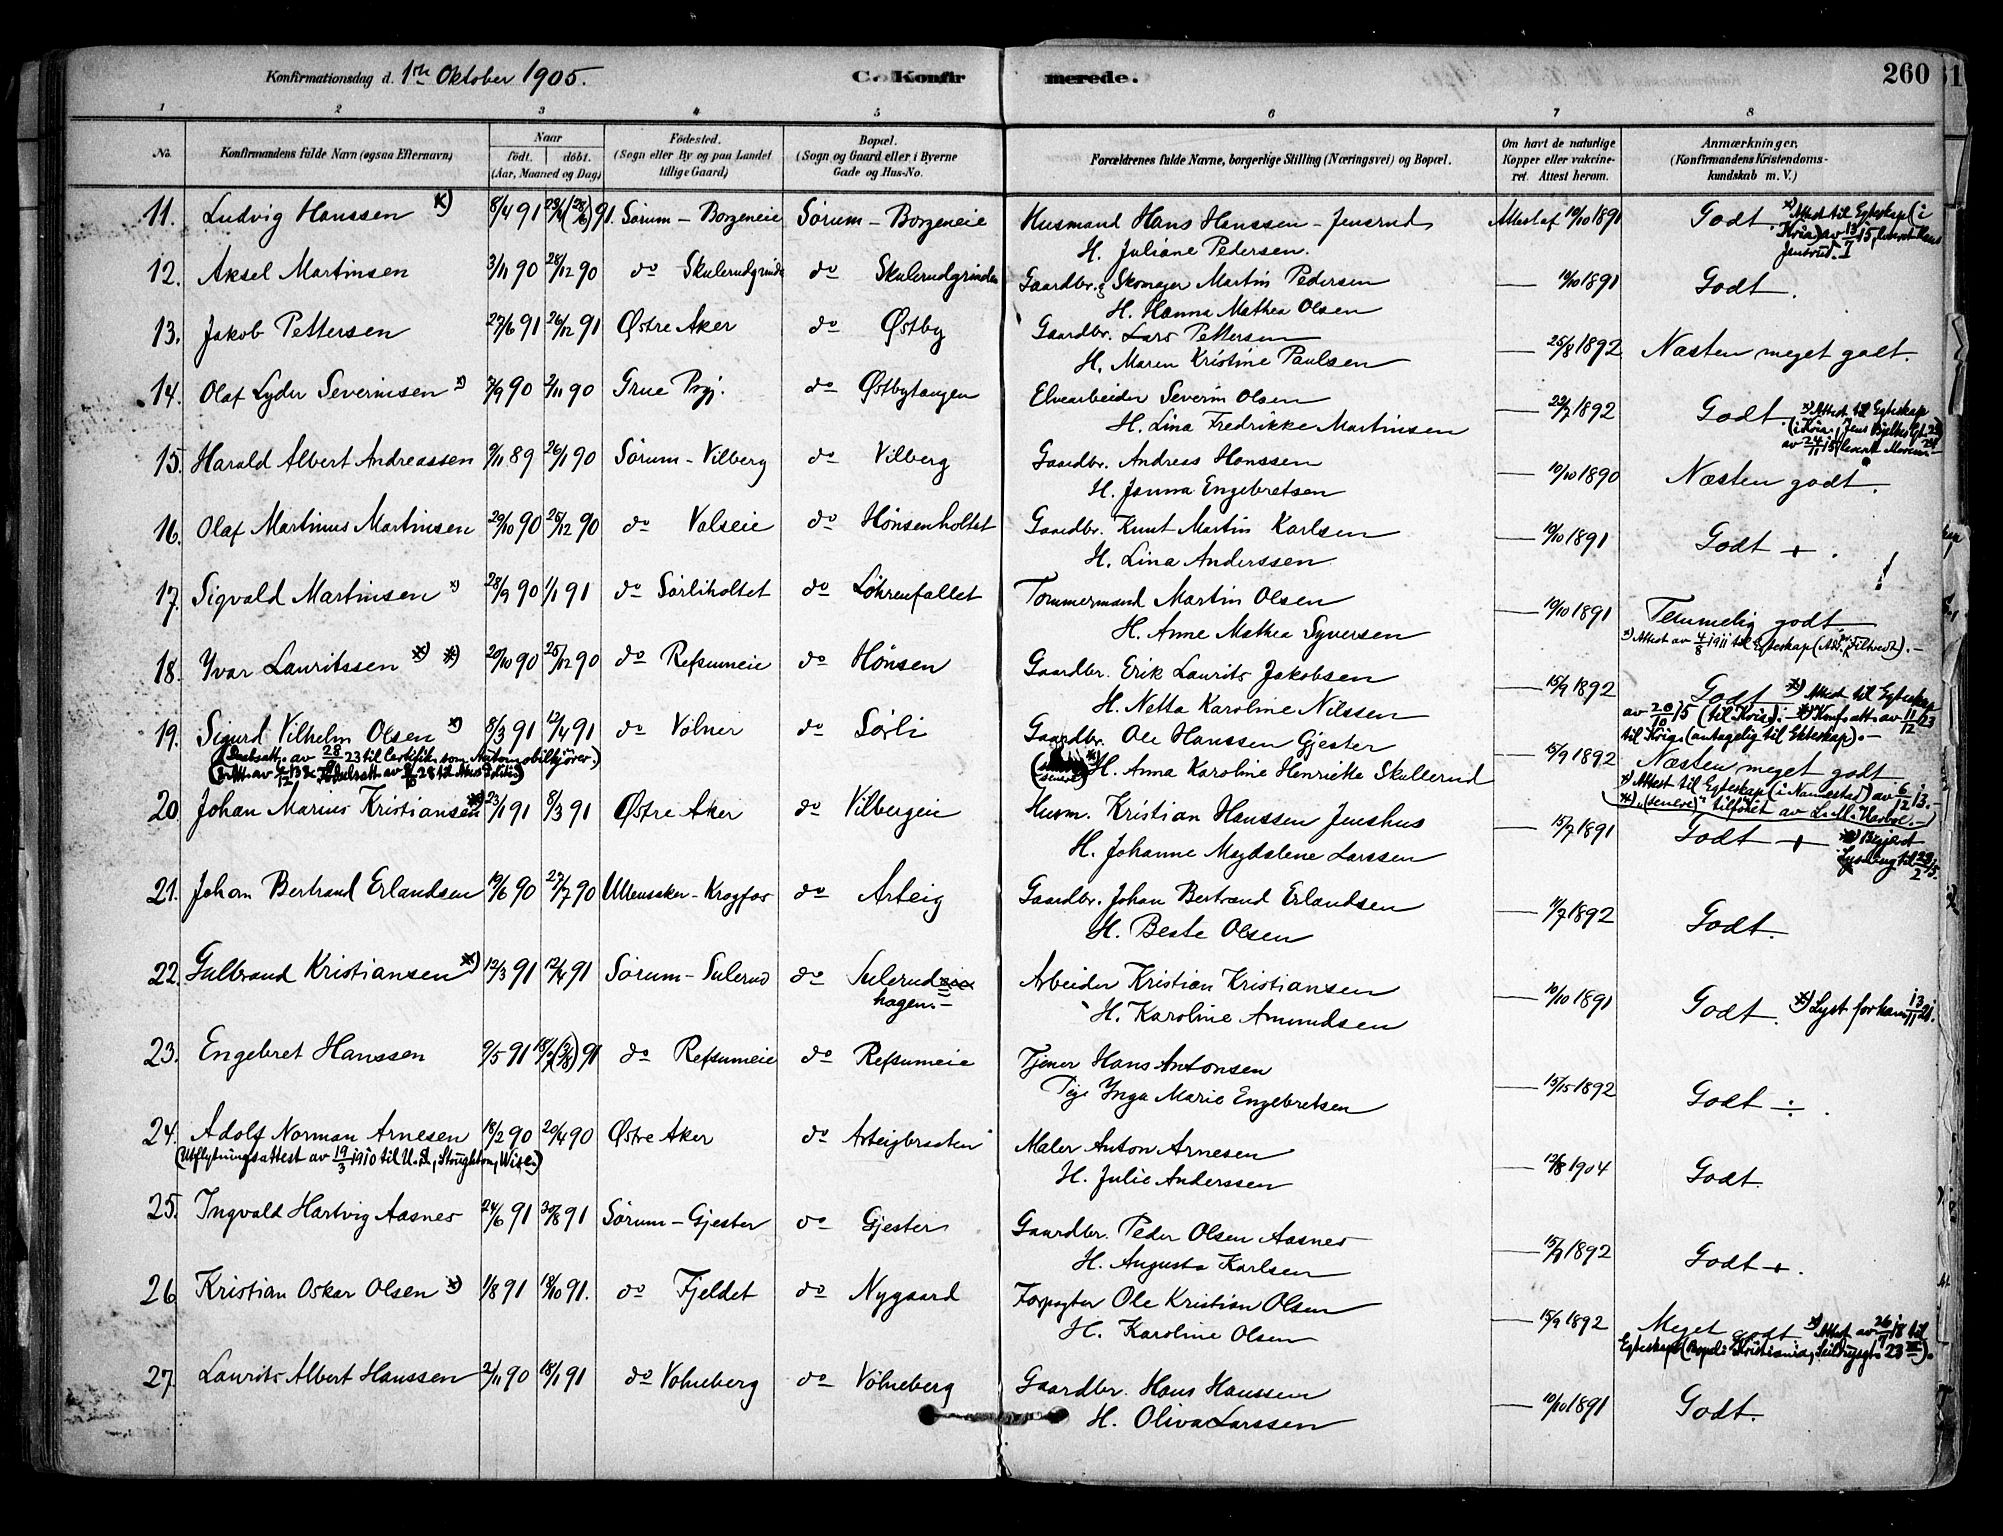 Konfirmationsdag d. 1ste Oktober 1905.
C. Konfirmerede.
260
1 2 3 4 5 6 7 8
No.
Konfirmandens fulde Navn (ogsaa Efternavn)
Naar
født. døbt.
(Aar, Maaned og Dag)
Fødested.
(Sogn eller By og paa Landet
tillige Gaard)
Bopæl.
(Sogn og Gaard eller i Byerne
Gade og Hus-No.
Forældrenes fulde Navne, borgerlige Stilling (Næringsvei) og Bopæl.
Om havt de naturlige
Kopper eller vaccineret. Attest herom.
Anmærkninger,
(Konfirmandens Kristendomskundskab m. V.)
11. Ludvig Hanssen x) 8/4 91 Sørum - Borgeneie Sørum - Borgeneie Husmand Hans Hanssen - Jensrud Attest af 10/10 1891 Godt. x) Attest til Egteskap (i
H. Juliane Pedersen. Kria) av 13/ 15, leveret Hans
Jensrud.
12. Aksel Martinsen 3/11 90 28/12 90 do Skulerudgrinden do Skulerudgrinden Gaardbr. & Skomager Martin Pedersen — 10/10 1891 Godt.
H. Hanna Mathea Olsen
13. Jakob Pettersen 27/6 91 26/12 91 Østre Aker do Østby Gaardbr. Lars Pettersen — 25/8 1892 Næsten meget godt.
H. Maren Kristine Paulsen
14. Olaf Lyder Severinsen x) 7/9 90 2/11 90 Grue Prgj. do Østbytangen Elvearbeider Severin Olsen — 1892 Godt. x) Attest til Egteskap
H. Lina Fredrikke Martinsen (i Kria, Jens Bjelkes Gt.
av 24/11 15
15. Harald Albert Andreassen 9/11 89 26/1 90 Sørum - Vilberg do Vilberg Gaardbr. Andreas Hanssen — 10/10 1890 Næsten godt.
H. Janna Engebretsen
16. Olaf Martinus Martinsen 29/10 90 25/12 90 do Valseie do Hønsenholtet Gaardbr. Knut Martin Karlsen — 10/10 1891 Godt +.
H. Lina Anderssen
17. Sigvald Martinsen x) 28/9 90 1/1 91 do Sørliholtet do Løhrenfallet Tømmermand Martin Olsen — 10/10 1891 Temmelig godt
H. Anne Mathea Syversen x) Attest av 4/8 1911 til Egteskap
18. Yvar Lauritssen x) x) 20/10 90 25/12 90 do Refsumeie do Hønsen Gaardbr. Erik Laurits Jakobsen — 15/9 1892 Godt x) Attest til Egteskap
H. Netta Karoline Nilssen av 20/10 15 (til Kria). — Konf.att. av 11/12 23
til Krigs. (antagelig til Ekteskap). —
19. Sigurd Vilhelm Olsen x) 8/3 91 12/4 91 do Vølner do Sørli Gaardbr. Ole Hanssen Gjester — 15/9 1892 Næsten meget godt
(Daabsatt. av 28/9 23 til Certifik. som Automobilkjører.) (senere) H. Anna Karoline Henriette Skullerud x) Attest til Egteskap (i Nannestad) av 6/12 13. —
(senere) tilføiet av
20. Johan Marius Kristiansen x) 23/1 91 8/3 91 Østre Aker do Vilbergeie Husm. Kristian Hanssen Jenshus — 15/7 1891 Godt + x) Begjært
H. Johanne Magdalene Larssen Lysning til 29/2 15.
21. Johan Bertrand Erlandsen 19/6 90 27/7 90 Ullensaker - Krogfos do Arteig Gaardbr. Johan Bertrand Erlandsen — 11/7 1892 Godt.
H. Beate Olsen
22. Gulbrand Kristiansen x) 12/3 91 12/4 91 Sørum - Sulerud do Sulerudeie Arbeider Kristian Kristiansen — 10/10 1891 Godt. x) Lyst for ham
hagen. — H. Karoline Amundsen
23. Engebret Hanssen 9/5 91 do Refsumeie do Refsumeie Tjener Hans Antonsen — 1892 Godt ÷.
Pige Ynga Marie Engebretsen
24. Adolf Norman Arnesen 18/2 90 20/4 90 Østre Aker do Arteigbraaten Maler Anton Arnesen — 12/8 1904 Godt.
(Utflytningsattest av 19/3 1910 til U.S., Stoughton, Wisc.) H. Julie Anderssen
25. Ingvald Hartvig Aasnes 24/6 91 30/8 91 Sørum - Gjester do Gjester Gaardbr. Peder Olsen Aasnes — 1892 Godt +.
H. Augusta Karlsen
26. Kristian Oskar Olsen x) 1/8 91 18/10 91. do Fjeldet do Nygaard Forpagter Ole Kristian Olsen — 15/9 1892 Meget godt x) Attest av 26/7 18 til
H. Karoline Olsen Egteskap (Bopæl: Kristiania, Seildugsgt. 23 III).
27. Laurits Albert Hanssen 2/11 90 18/1 91 do Volneberg do Vølneberg Gaardbr. Hans Hanssen — 10/10 1891 Godt.
H. Oliva Larssen